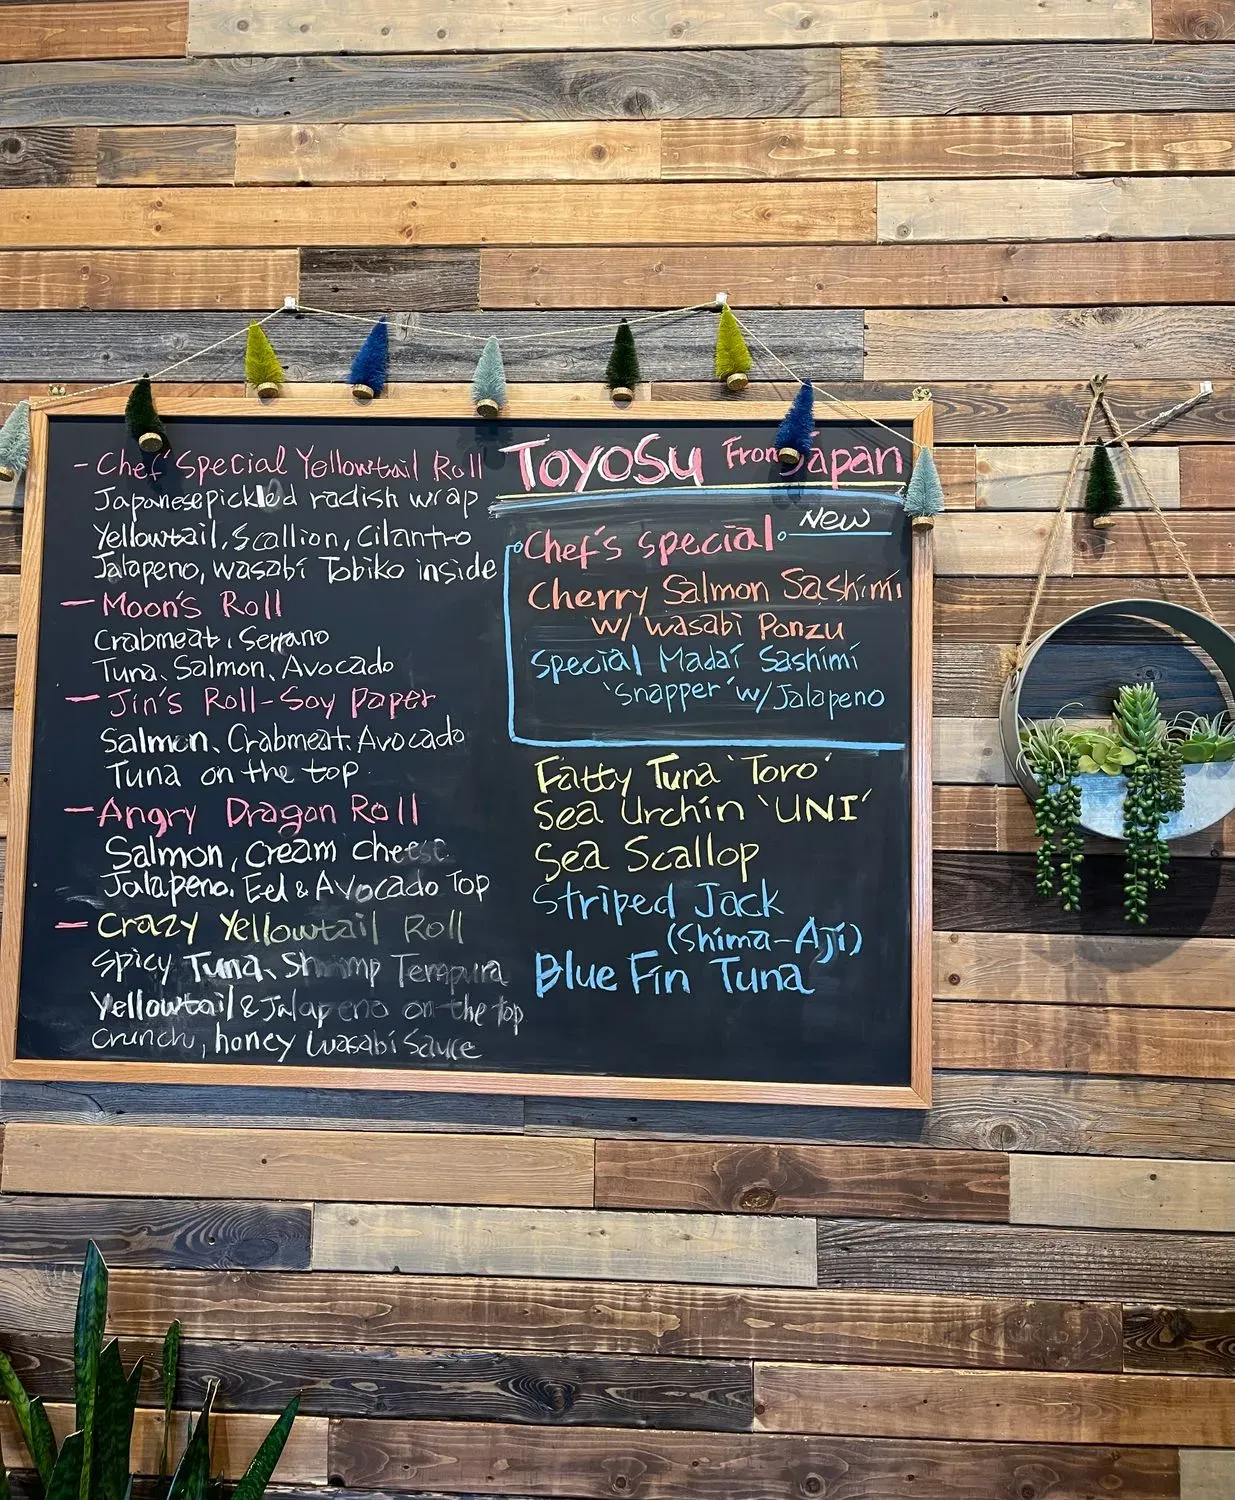 - Chef Special Yellowtail Roll
Japanese pickled radish wrap
Yellowtail, Scallion, Cilantro
Jalapeno, wasabi Tobiko inside
- Moon's Roll
Crabmeat, Serrano
Tuna, Salmon, Avocado
- Jin's Roll - Soy Paper
Salmon, Crabmeat, Avocado
Tuna on the top
- Angry Dragon Roll
Salmon, Cream cheese
Jalapeno, Eel & Avocado Top
- Crazy Yellowtail Roll
Spicy Tuna, Shrimp Tempura
Yellowtail & Jalapeno on the top
Crunch, honey Wasabi Sauce
Toyosu From Japan
New
Chef's special
Cherry Salmon Sashimi
w/ wasabi Ponzu
Special Madai Sashimi
'Snapper' w/ Jalapeno
Fatty Tuna 'Toro'
Sea Urchin 'UNI'
Sea Scallop
Striped Jack
(Shima-Aji)
Blue Fin Tuna